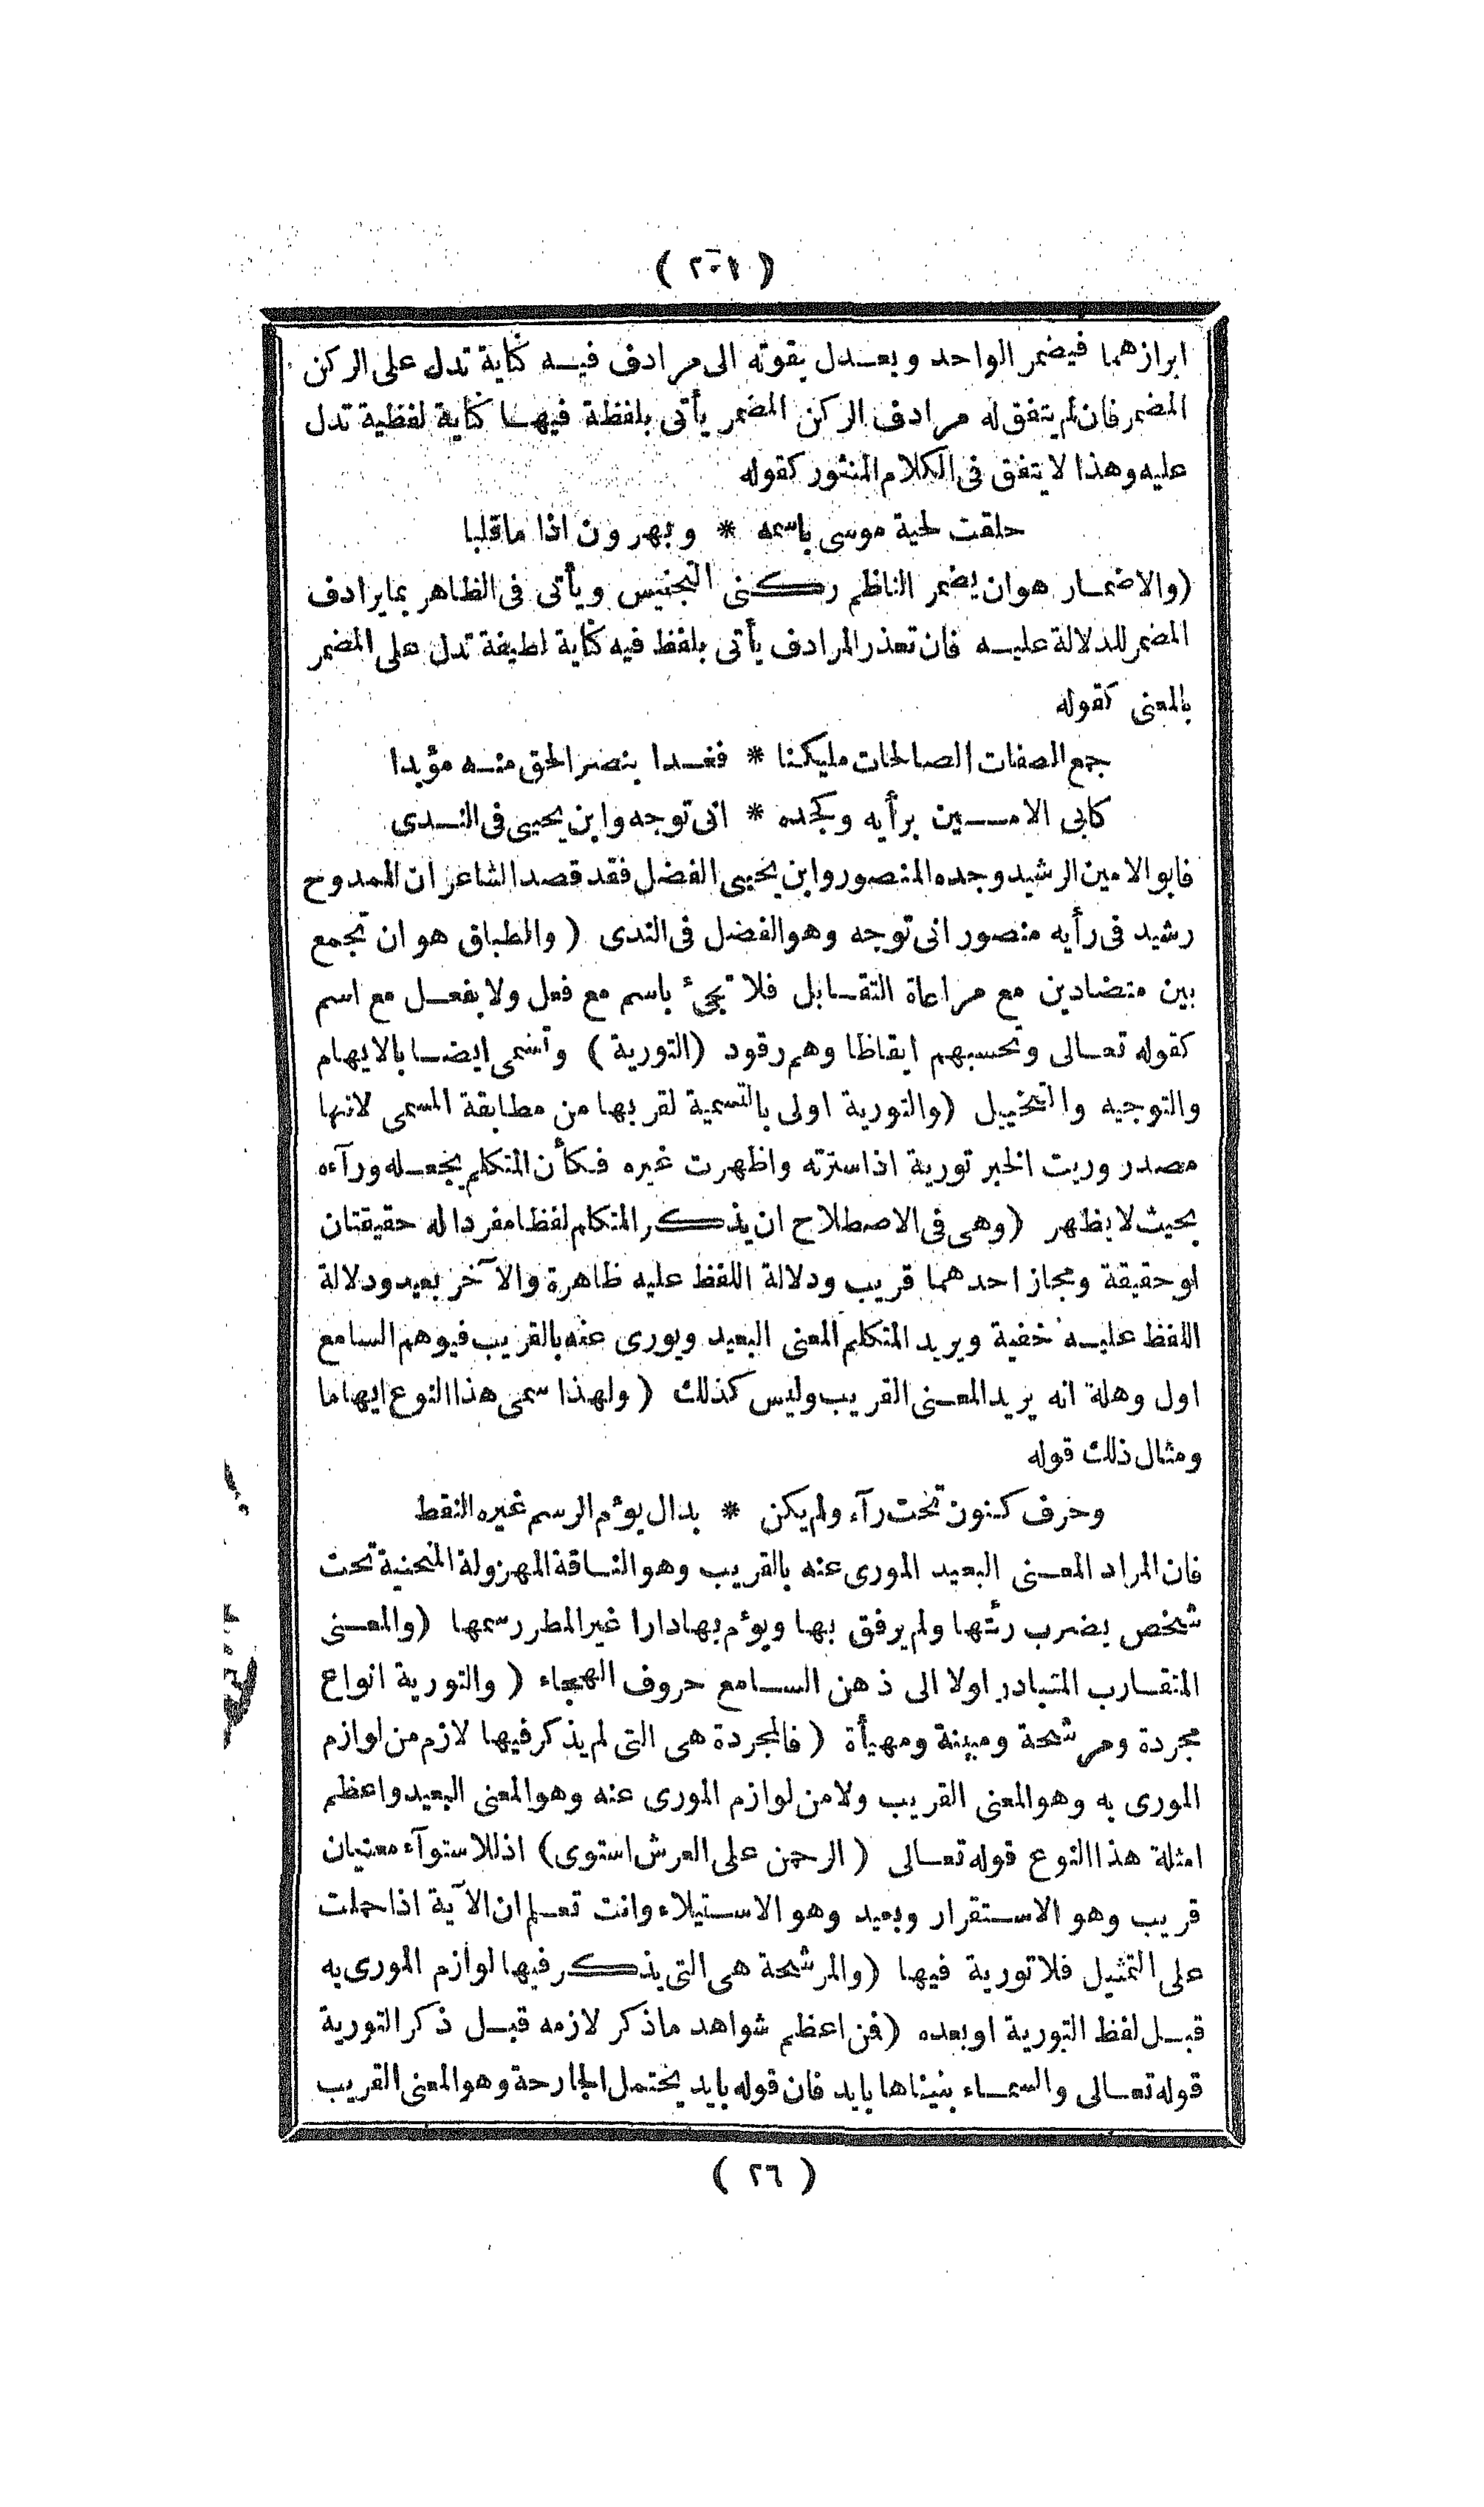 ( ٢٠١ )
ابرازهما فيضمر الواحد ويعدل بقوته الى مرادف فيه كناية تدل على الركن
المضمر فان لم يتفق له مرادف الركن المضمر يأتى بلفظة فيها كناية لفظية تدل
عليه وهذا لا يتفق فى الكلام المنثور كقوله
حلقت لحية موسى باسمه * وبهرون اذا ما قلبا
(والاضمار هو ان يضمر الناظم ركنى التجنيس ويأتى فى الظاهر بما يرادف
المضمر للدلالة عليه فان تعذر المرادف يأتى بلفظ فيه كناية لطيفة تدل على المضمر
بالمعنى كقوله
جمع الصفات الصالحات مليكنا * فغدا بنصر الحق منه مؤيدا
كابى الامين برأيه وكجده * انى توجه وابن يحيى فى الندى
فابو الامين الرشيد وجده المنصور وابن يحيى الفضل فقد قصد الشاعر ان الممدوح
رشيد فى رأيه منصور انى توجه وهو الفضل فى الندى ( والطباق هو ان تجمع
بين متضادين مع مراعاة التقابل فلا تجئ باسم مع فعل ولا بفعل مع اسم
كقوله تعالى وتحسبهم ايقاظا وهم رقود (التورية ) وتسمى ايضا بالايهام
والتوجيه والتخييل (والتورية اولى بالتسمية لقربها من مطابقة المسمى لانها
مصدر وريت الخبر تورية اذا سترته واظهرت غيره فكأن المتكلم يجعله ورآءه
بحيث لا يظهر (وهى فى الاصطلاح ان يذكر المتكلم لفظا مفردا له حقيقتان
او حقيقة ومجاز احدهما قريب ودلالة اللفظ عليه ظاهرة والآخر بعيد ودلالة
اللفظ عليه خفية ويريد المتكلم المعنى البعيد ويورى عنه بالقريب فيوهم السامع
اول وهلة انه يريد المعنى القريب وليس كذلك ( ولهذا سمى هذا النوع ايهاما
ومثال ذلك قوله
وحرف كنون تحت رآء ولم يكن * بدال يؤم الرسم غيره النقط
فان المراد المعنى البعيد المورى عنه بالقريب وهو الناقة المهزولة المنحنية تحت
شخص يضرب رئتها ولم يرفق بها ويؤم بها دارا غير المطر رسمها (والمعنى
المتقارب المتبادر اولا الى ذهن السامع حروف الهجاء ( والتورية انواع
مجردة ومرشحة ومبينة ومهيأة ( فالمجردة هى التى لم يذكر فيها لازم من لوازم
المورى به وهو المعنى القريب ولا من لوازم المورى عنه وهو المعنى البعيد واعظم
امثلة هذا النوع قوله تعالى ( الرحمن على العرش استوى) اذ للاستوآء معنيان
قريب وهو الاستقرار وبعيد وهو الاستيلاء وانت تعلم ان الآية اذا حملت
على التمثيل فلا تورية فيها (والمرشحة هى التى يذكر فيها لوازم المورى به
قبل لفظ التورية او بعده (فمن اعظم شواهد ما ذكر لازمه قبل ذكر التورية
قوله تعالى والسماء بنيناها بايد فان قوله بايد يحتمل الجارحة وهو المعنى القريب
( ٢٦ )